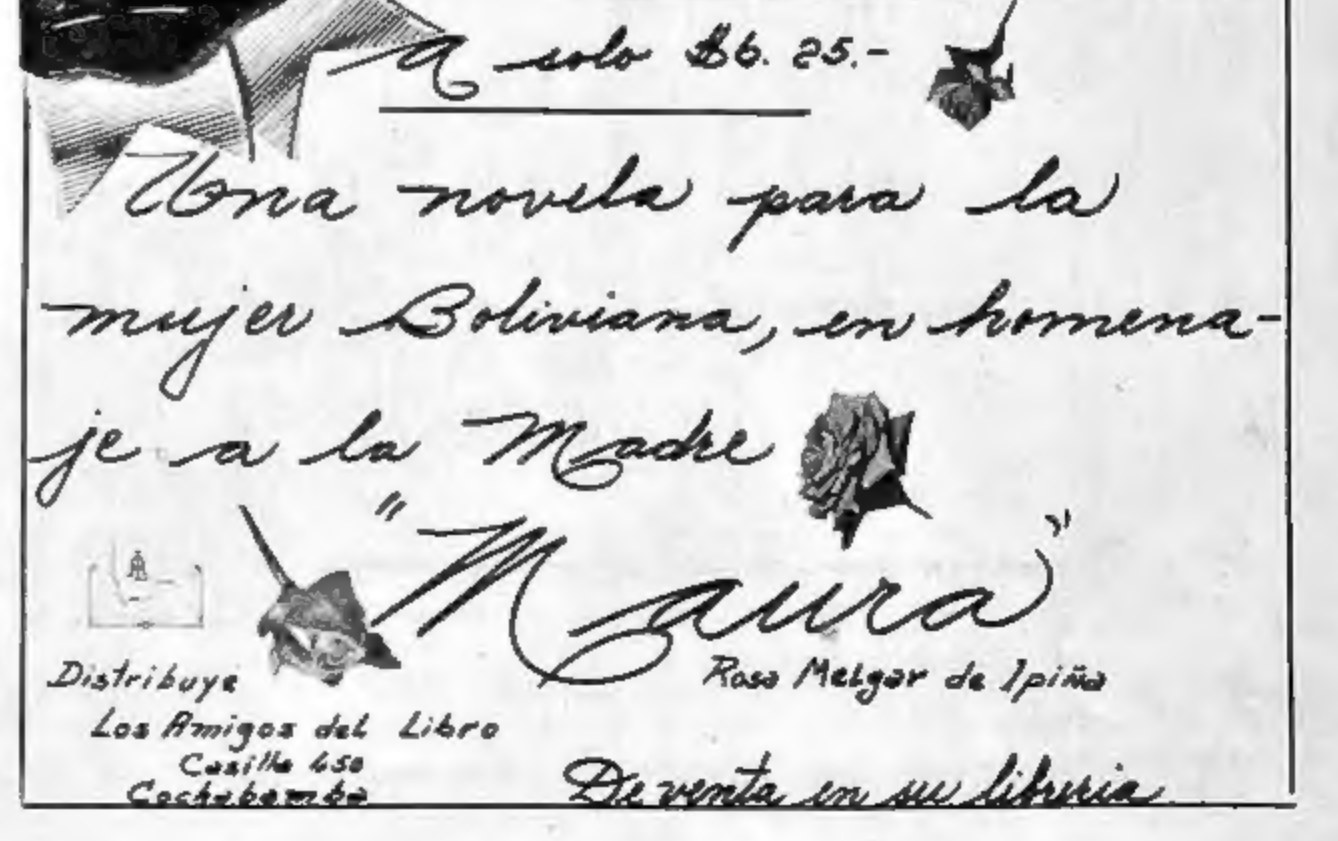 A solo $6. 25.-
Una novela para la
mujer Boliviana, en homena-
je a la Madre
"Maura"
Rosa Melgar de Ipiña
Distribuye
Los Amigos del Libro
Casilla 450
Cochabamba
De venta en su libreria